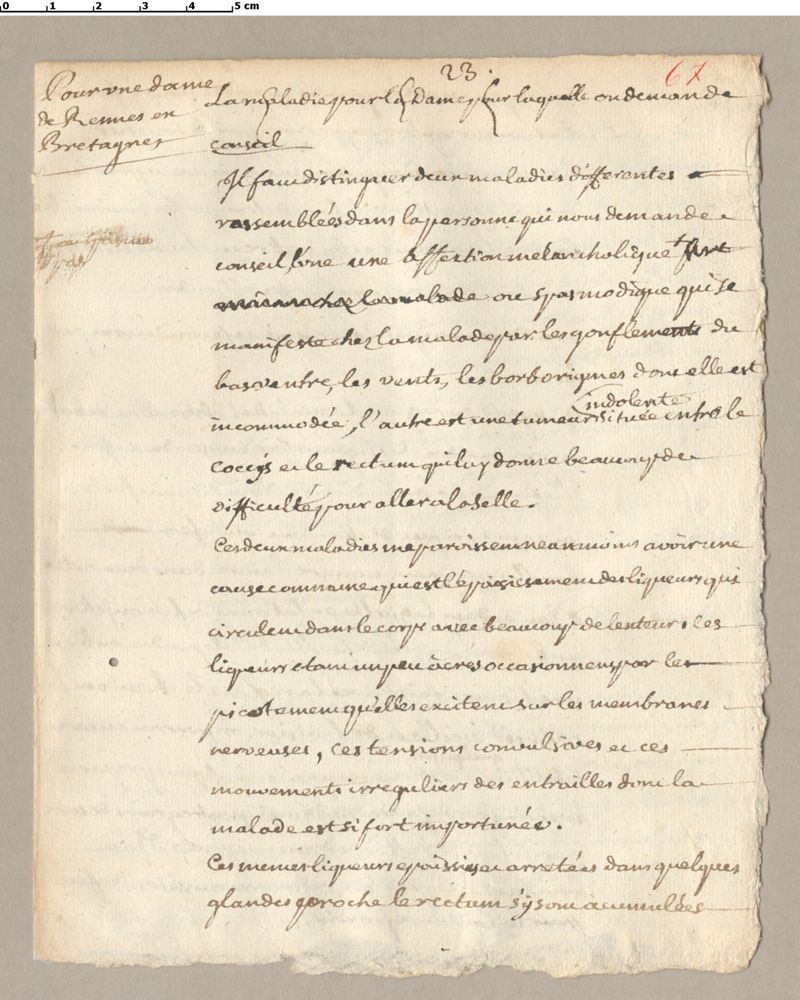 0 1 2 3 4 5 cm
23.
67
Pour une dame
de Rennes en
Bretagnes
La maladie pour la Dame pour laquelle on demande
conseil
Il faut distinguer deux maladies differentes
rassemblées dans la personne qui nous demande
conseil, l'une une affection melancholique
la malade ou spasmodique qui se
manifeste chez la malade par les gonflements du
bas ventre, les vents, les borborigmes dont elle est
indolente
incommodée, l'autre est une tumeur située entre le
coccÿs et le rectum qui luy donne beaucoup de
difficulté pour aller a la selle.
Ces deux maladies me paroissent neanmoins avoir une
cause commune qui est l'épaisissement des liqueurs qui
circulent dans le corps avec beaucoup de lenteur. Ces
liqueurs etant un peu àcres occasionnent par les
picotement qu'elles excitent sur les membranes
nerveuses, ces tensions convulsives et ces
mouvements irreguliers des entrailles dont la
malade est si fort importunée.
Ces memes liqueurs epaissies et arretées dans quelques
glandes proche le rectum s'ÿ sont acumulées